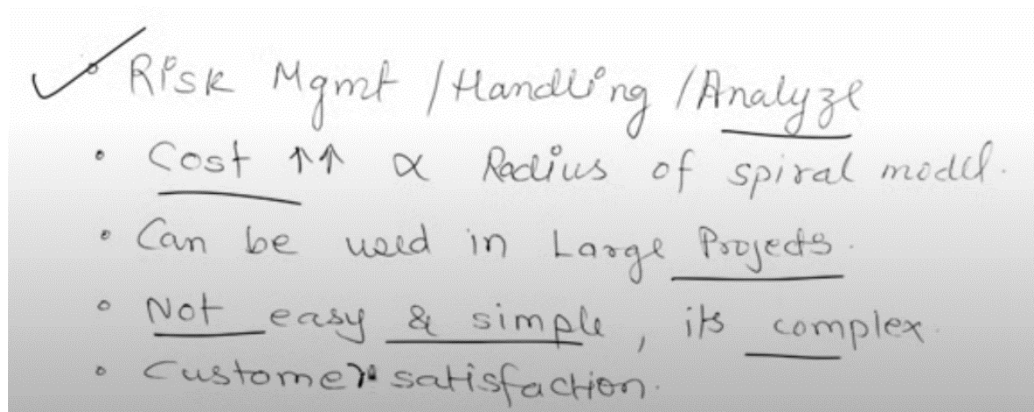 ✓• Risk Mgmt / Handling / Analyze
• Cost ↑↑ ∝ Radius of spiral model.
• Can be used in Large Projects.
• Not easy & simple, its complex.
• Customer satisfaction.